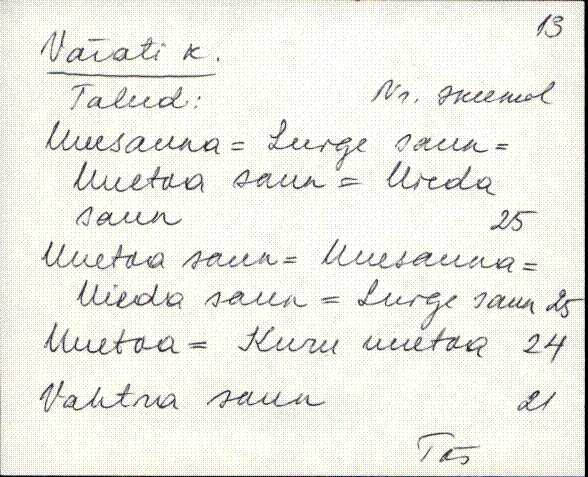 13
Värati k.
Talud: Nr. skeemil
Uuesauna = Surge saun =
Uuetoa saun = Uieda
saun 25
Uuetoa saun = Uuesauna =
Uieda saun = Surge saun 25
Uuetoa = Kuru uuetoa 24
Vahtra saun 21